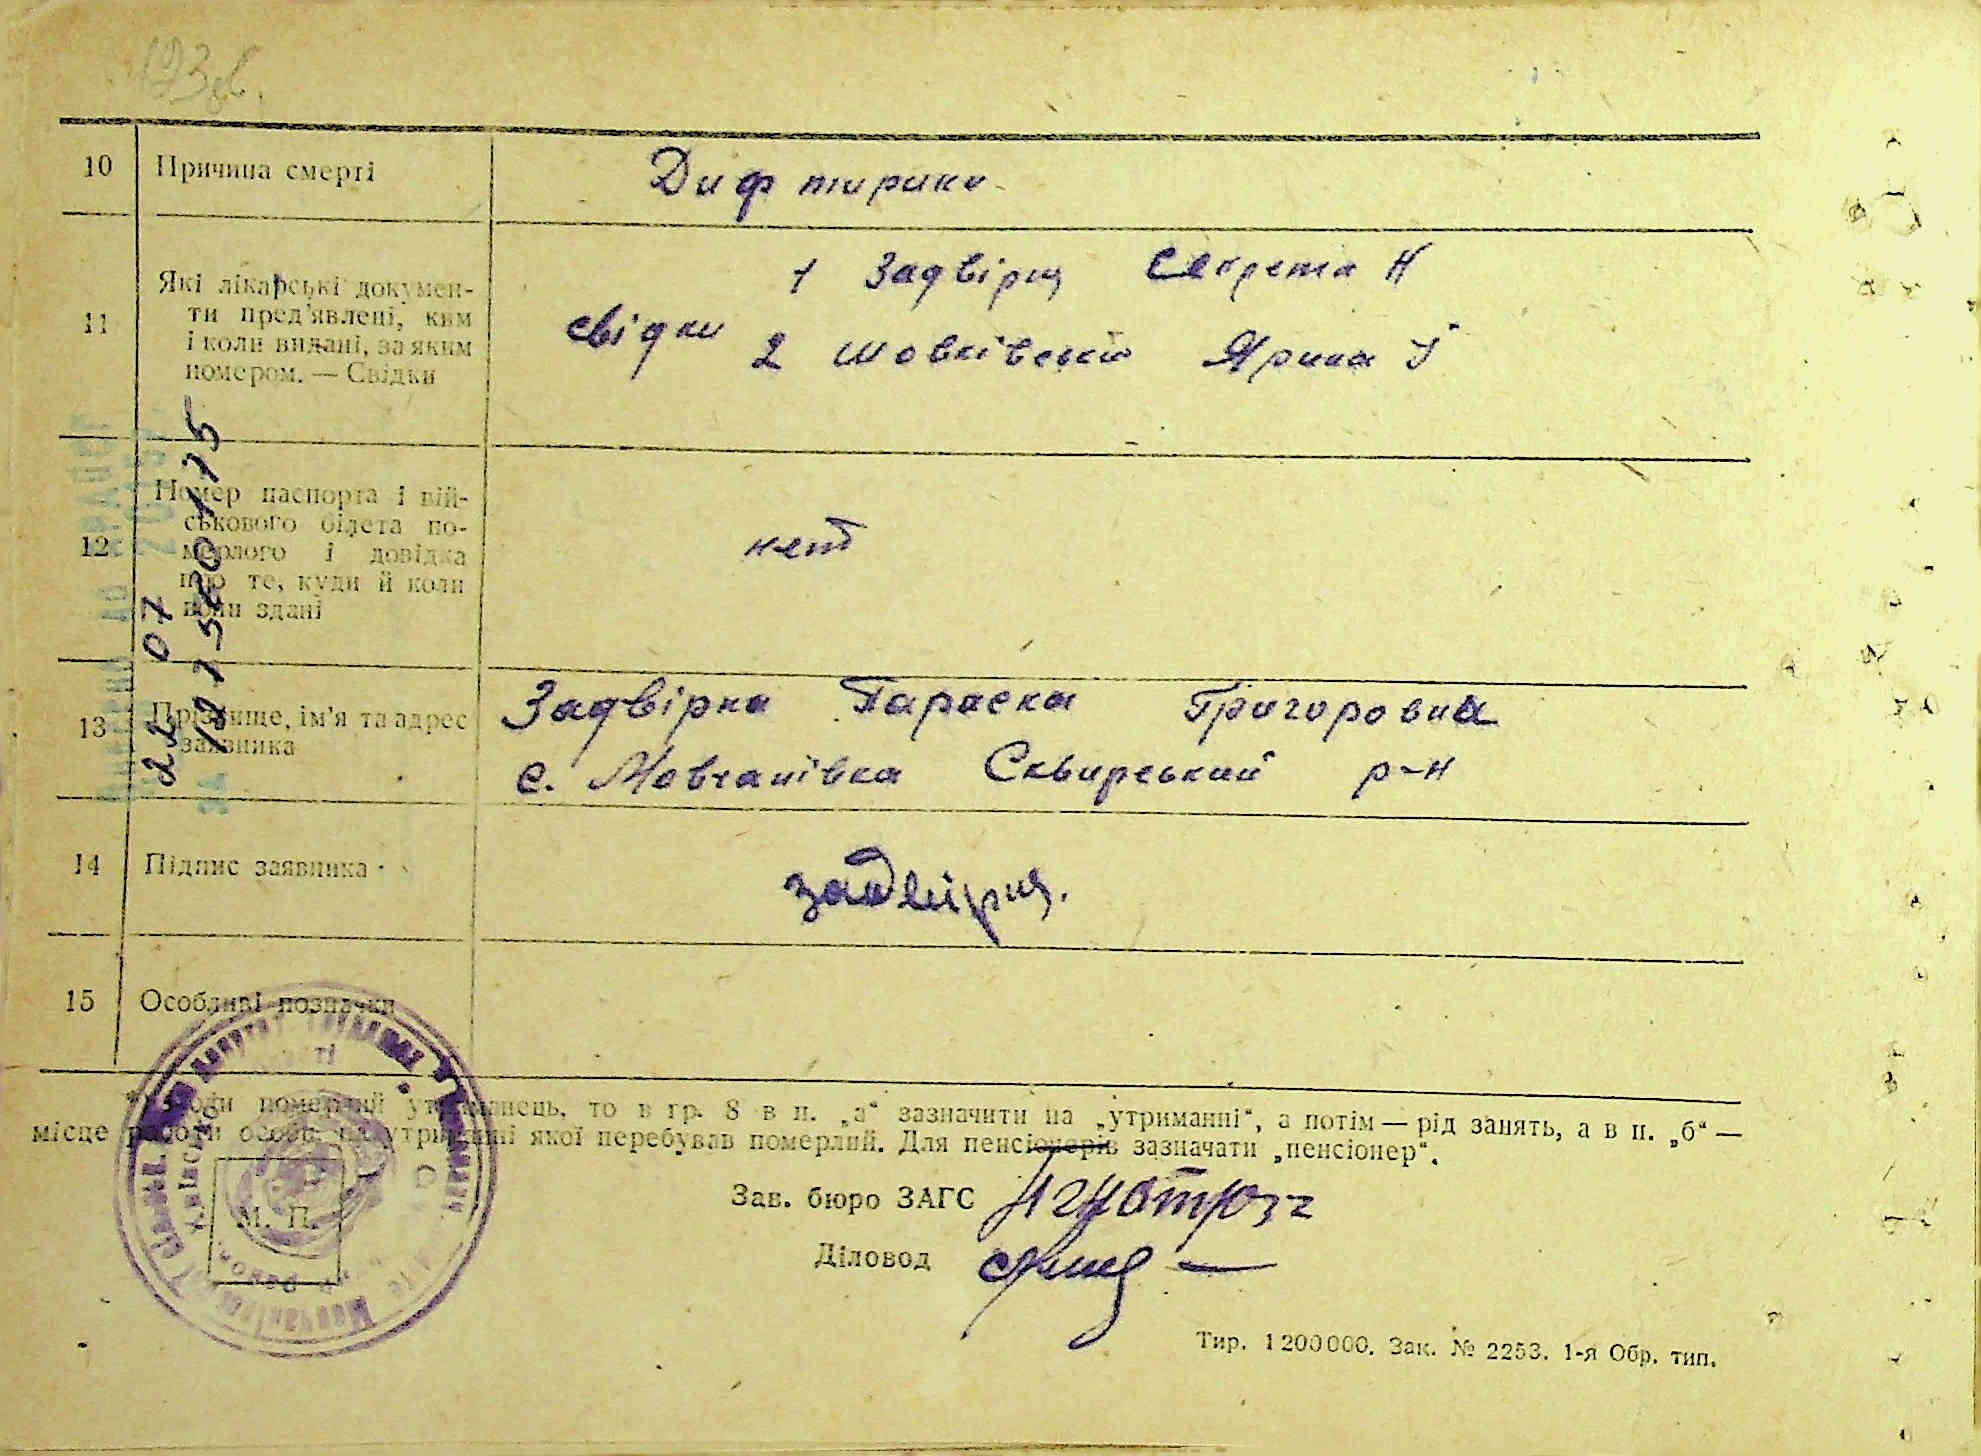 193 зв.
10 Причина смерті
Дифтирик
11 Які лікарські докумен-
ти пред'явлені, ким
і коли видані, за яким
номером. — Свідки
1 Задвірня Секрета Н
свідки
2 Шовківська Ярина І
12 Номер паспорта і вій-
ськового білета по-
мерлого і довідка
про те, куди й коли
вони здані
нет
22 07
13 Прізвище, ім'я та адрес
заявника
Задвірна Параска Григоровна
с. Мовчанівка Сквирський р-н
14 Підпис заявника
Задвірня.
15 Особливі позначки
померлий утриманець, то в гр. 8 в п. „а“ зазначити на „утриманні“, а потім — рід занять, а в п. „б“ —
місце роботи особи, на утриманні якої перебував померлий. Для пенсіонерів зазначати „пенсіонер“.
Зав. бюро ЗАГС
М. П.
Діловод
Тир. 1200000. Зак. № 2253. 1-я Обр. тип.